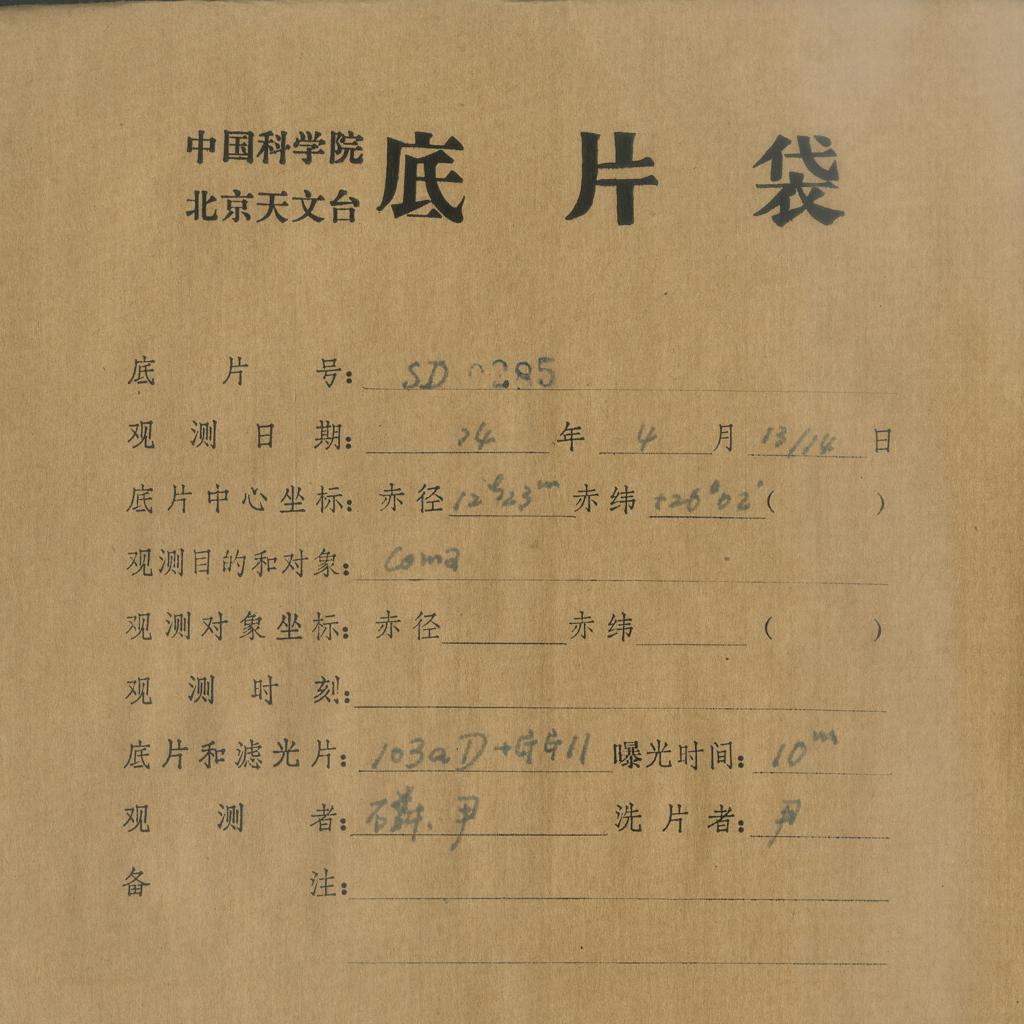 中国科学院
北京天文台
底片袋
底片号: SD 0285
观测日期: 74 年 4 月 13/14 日
底片中心坐标: 赤径 12ʰ23ᵐ 赤纬 +26°02' ( )
观测目的和对象: Coma
观测对象坐标: 赤径 赤纬 ( )
观测时刻:
底片和滤光片: 103aD+GG11 曝光时间: 10ᵐ
观测者: 尹 洗片者: 尹
备注: